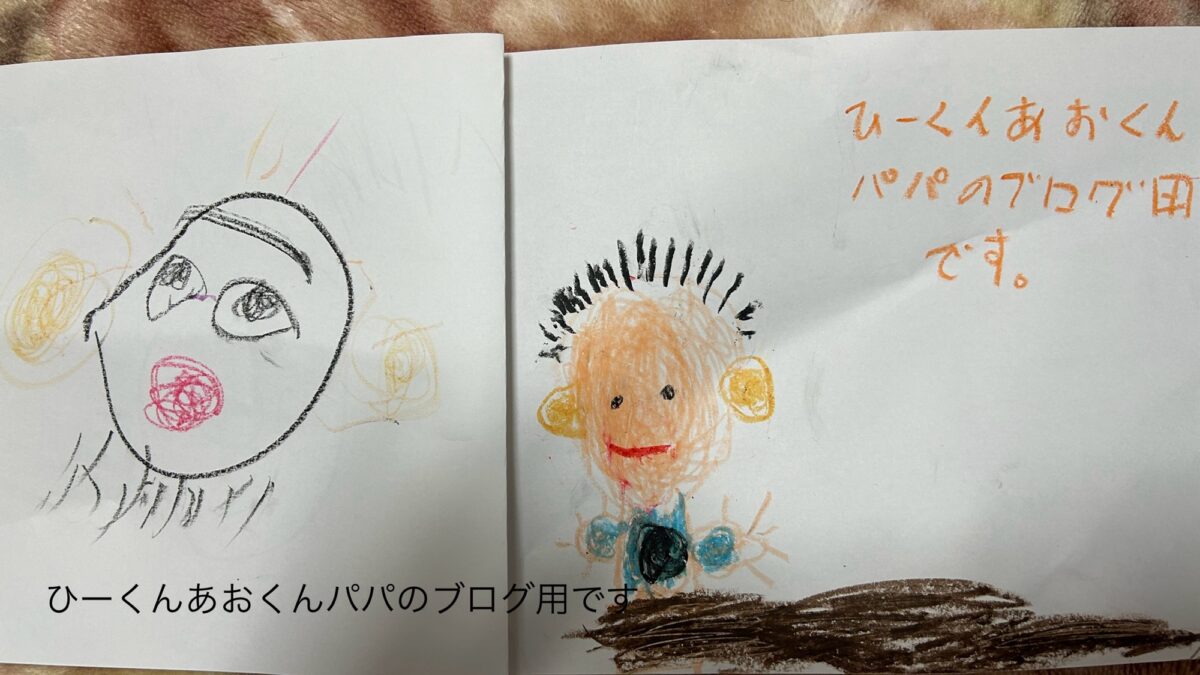 ひーくんあおくん
パパのブログ用
です。
ひーくんあおくんパパのブログ用です